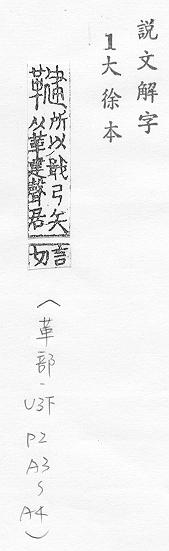 説文解字
1大徐本
鞬所以戢弓矢
从革建聲居
言
切
(革部-U3下
P2
A3
~
A4)